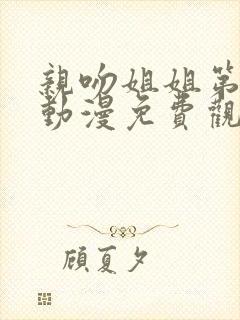 親吻姐姐第
動漫免費觀
顾夏夕